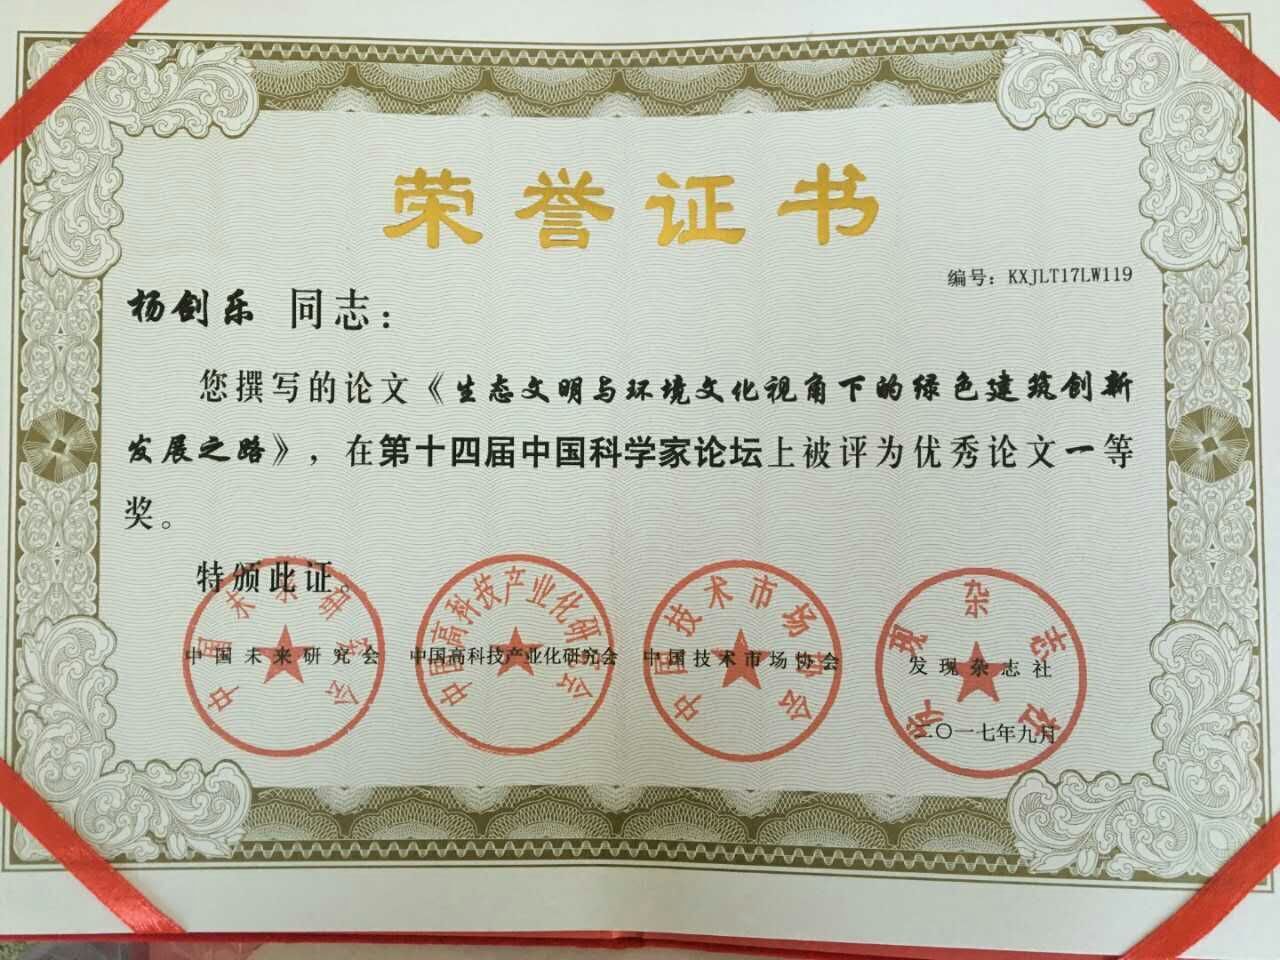 荣誉证书
编号：KXJLT17LW119
杨剑乐 同志：
您撰写的论文《生态文明与环境文化视角下的绿色建筑创新
发展之路》，在第十四届中国科学家论坛上被评为优秀论文一等
奖。
特颁此证。
中国未来研究会
中国高科技产业化研究会
中国技术市场协会
发现杂志社
中国未来研究会
中国高科技产业化研究会
中国技术市场协会
发现杂志社
二〇一七年九月